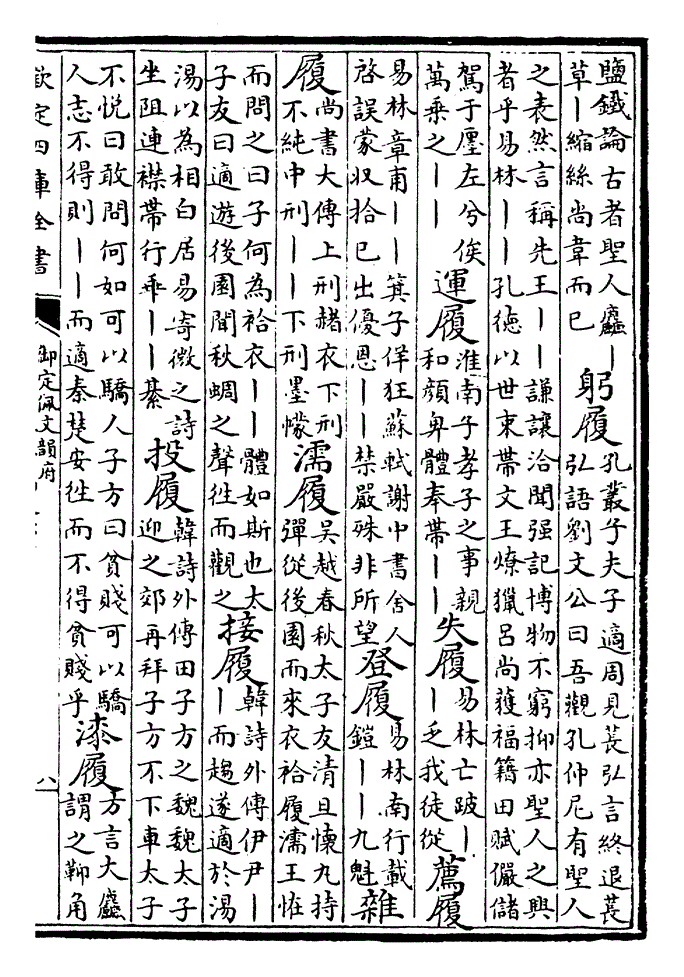 鹽鐵論古者聖人麤丨
草丨縮絲尚韋而已
躬履
孔叢子夫子適周見萇弘言終退萇
弘語劉文公曰吾觀孔仲尼有聖人
之表然言稱先王丨丨謙讓洽聞强記博物不窮抑亦聖人之興
者乎易林丨丨孔德以世東帶文王燎獵呂尚獲福籍田賦儼儲
駕于廛左兮俟
萬乘之丨丨
運履
淮南子孝子之事親
和顔卑體奉帶丨丨
失履
易林亡跛丨
丨乏我徒從
薦履
易林章甫丨丨箕子佯狂蘇軾謝中書舍人
啓誤蒙収拾已出優恩丨丨禁嚴殊非所望
登履
易林南行載
鎧丨丨九魁
雜履
尚書大傳上刑赭衣下刑
不純中刑丨丨下刑墨幪
濡履
吳越春秋太子友清旦懷九持
彈從後園而來衣袷履濡王怪
而問之曰子何為袷衣丨丨體如斯也太
子友曰適遊後園聞秋蜩之聲徃而觀之
接履
韓詩外傳伊尹丨
丨而趨遂適於湯
湯以為相白居易寄微之詩
坐阻連襟帶行乖丨丨綦
投履
韓詩外傳田子方之魏魏太子
迎之郊再拜子方不下車太子
不悦曰敢問何如可以驕人子方曰貧賤可以驕
人志不得則丨丨而適秦楚安徃而不得貧賤乎
漆履
方言大麤
謂之角
欽定四庫全書
御定佩文韻府
八